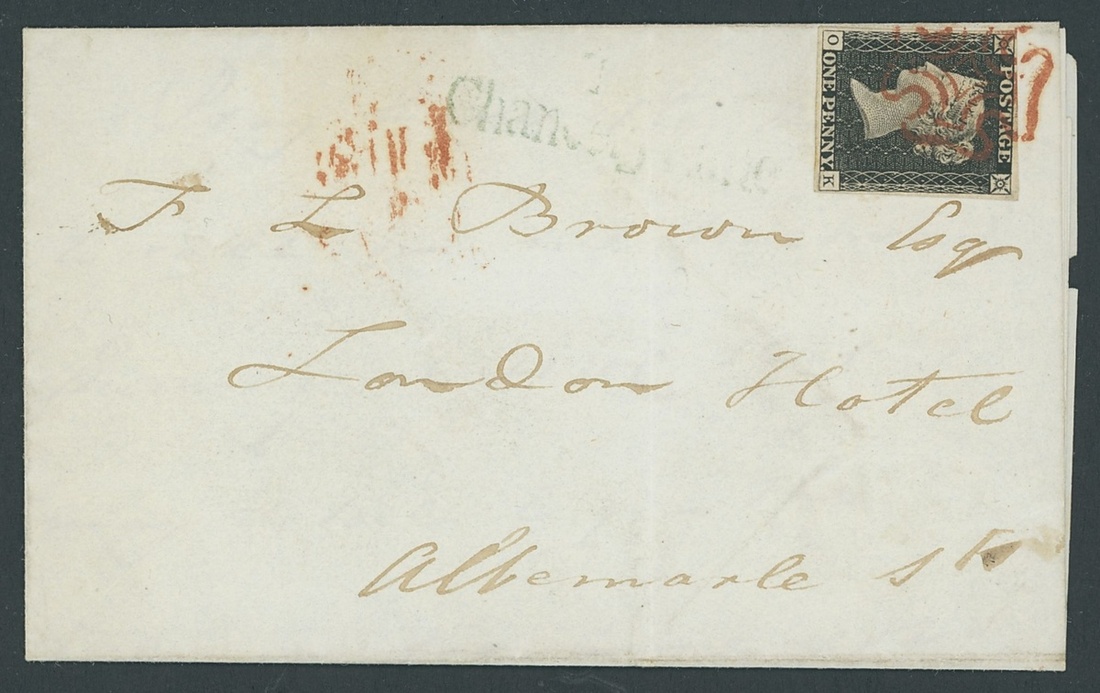 POSTAGE
O ONE PENNY K
T L Brown Esq
London Hotel
Albemarle St